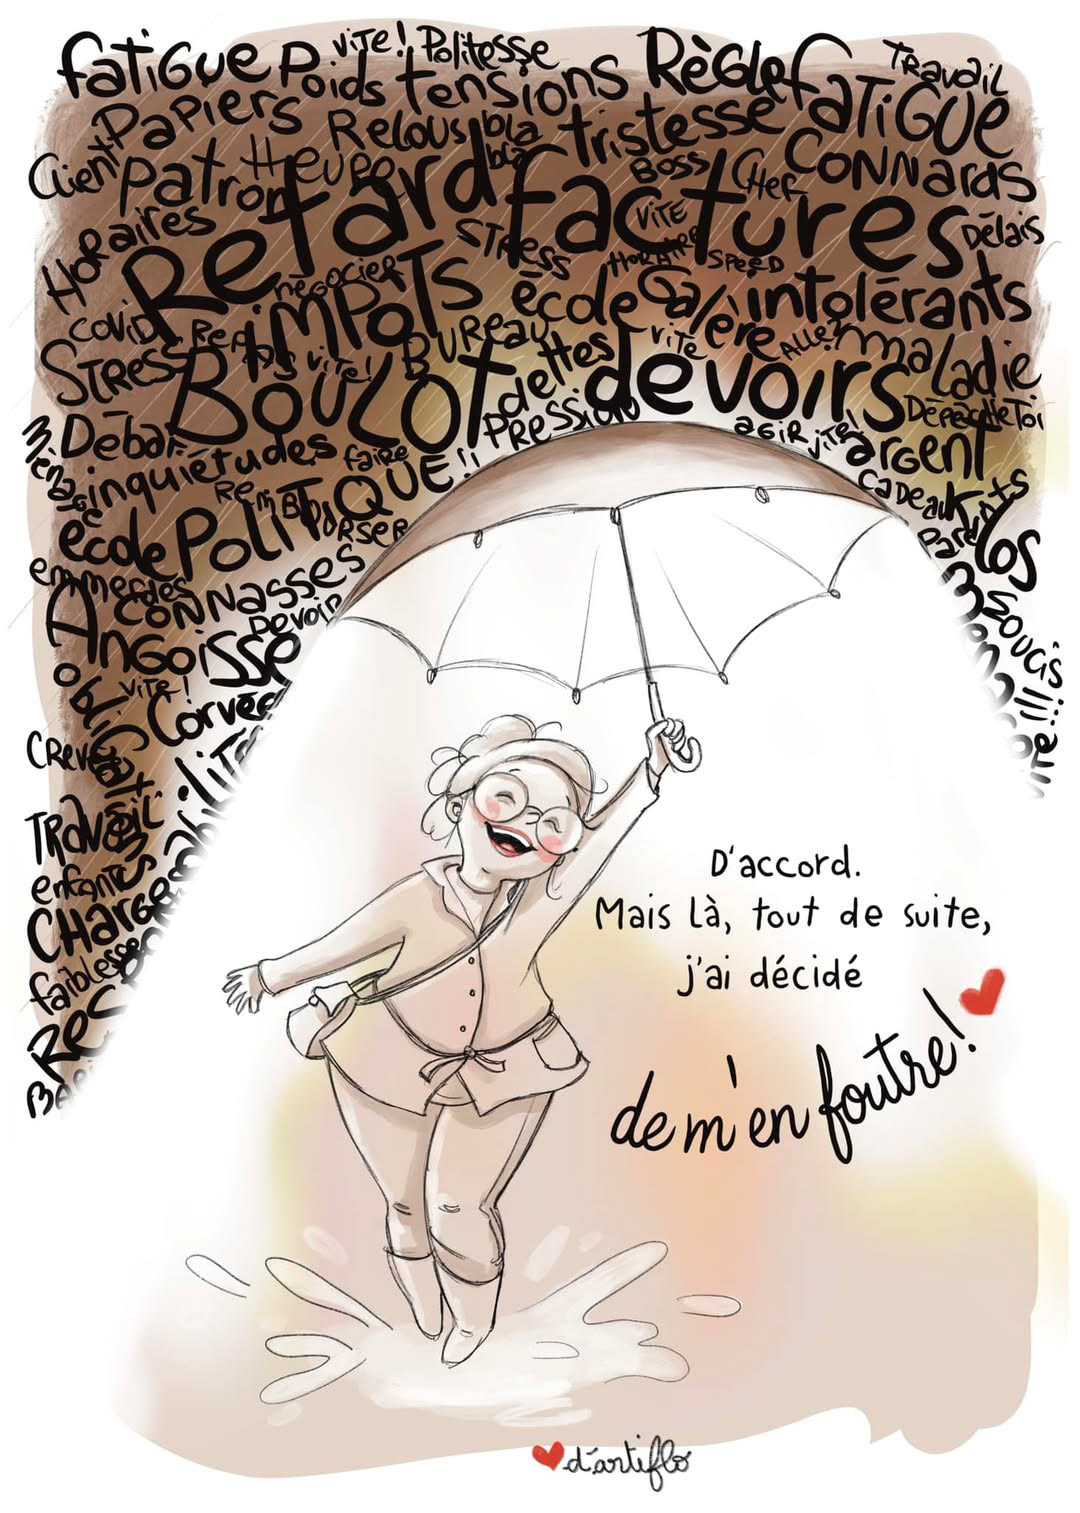 fatigue Poids vite! Politesse tensions Règle Travail
Papiers Relous bla bla tristesse fatigue
Client Patron Heure Boss Chef Connards
Horaires Retard factures vite Délais
Stress Horaire Speed
négocier impots école Galère intolérants
covid Repas vite! Bureau dettes vite Allez maladie
Stress Boulot devoirs Dépêche Toi
Ménage Débat Pression agir vite argent
inquiétudes faire cadeau
école Rembourser Politique!! Kilos
emmerdes Connasses Devoir
Angoisse Soucis
vite! Corvée vite!!!
Crevé
Travail
enfants
Charge
faiblesse
D'accord.
Mais là, tout de suite,
j'ai décidé
de m'en foutre!
d'artiflo